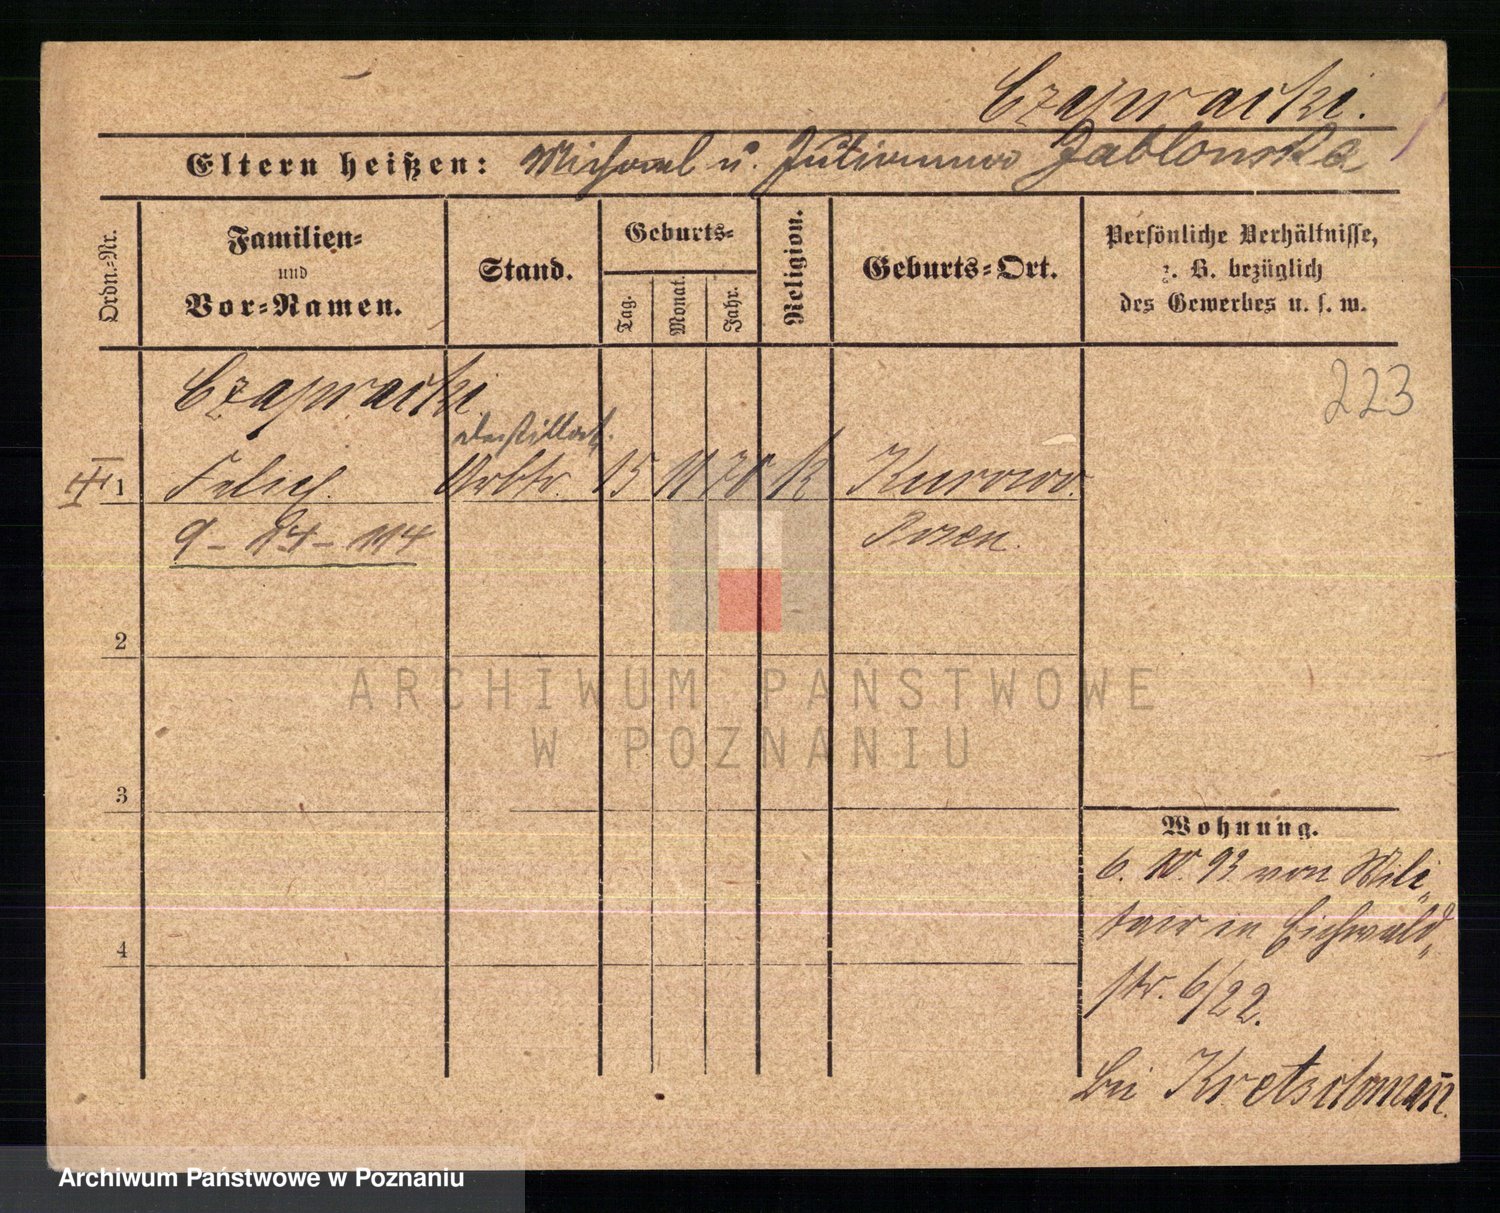 Czapracki.
Eltern heißen: Michael u. Julianna Jablonska
Ordn.-Nr.
Familien-
und
Vor-Namen.
Stand.
Geburts-
Tag.
Monat.
Jahr.
Religion.
Geburts-Ort.
Persönliche Verhältnisse,
z. B. bezüglich
des Gewerbes u. s. w.
223
Czapracki
1 Felix. Arbtr. 15 11 70 k Kurowo.
Posen.
2
3
4
Wohnung.
6. 10. 93 von Mili-
tair in Eichwald-
str. 6/22.
bei Kretschmann.
ARCHIWUM PAŃSTWOWE
W POZNANIU
Archiwum Państwowe w Poznaniu